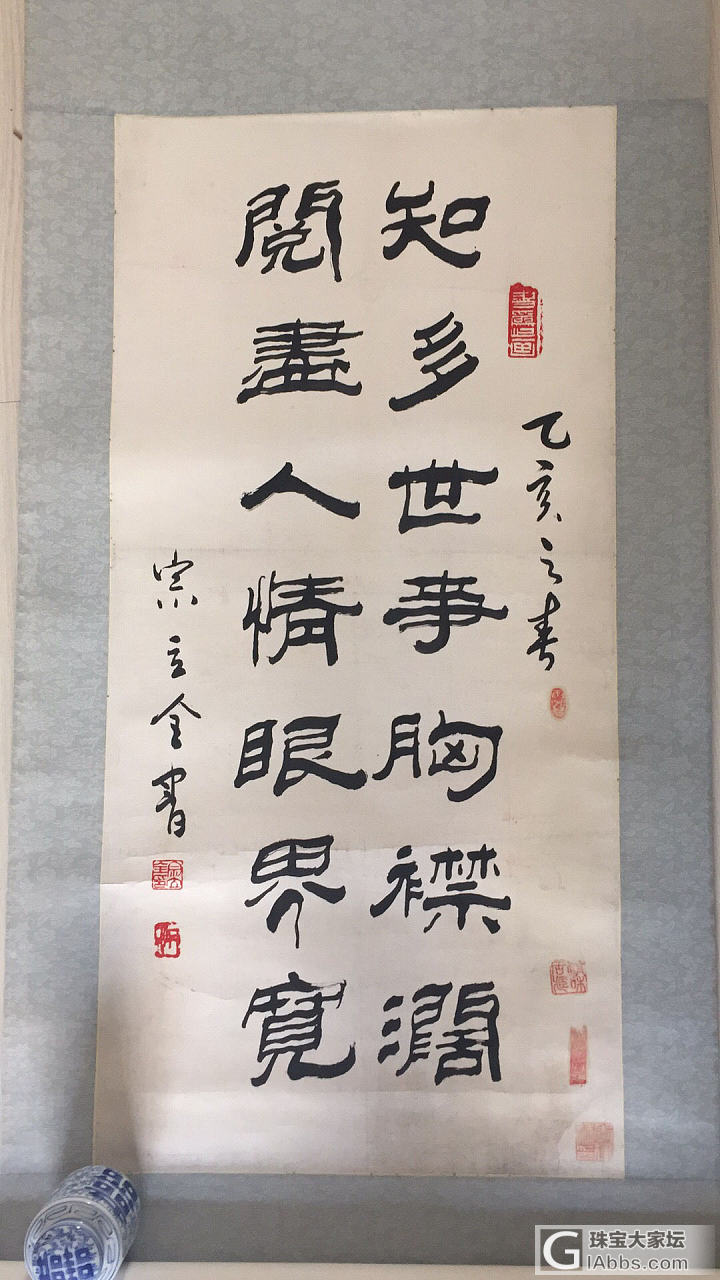 乙亥之春
知多世事胸襟濶
閱盡人情眼界寬
宗立全書
珠宝大家坛
GIAbbs.com